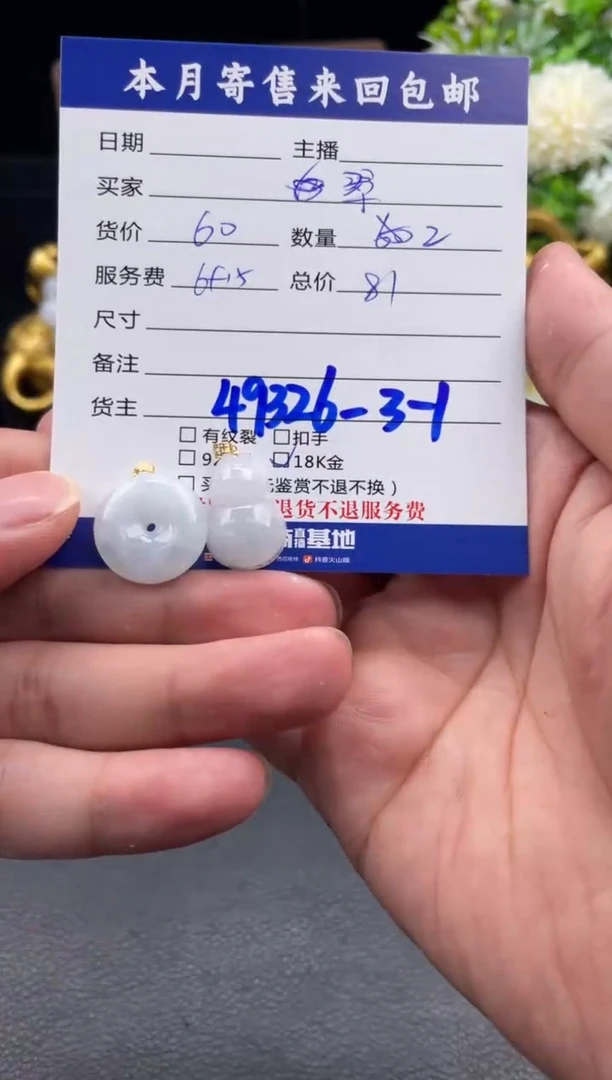 本月寄售来回包邮
日期 主播
买家 翠
货价 60 数量 2
服务费 6+15 总价 81
尺寸
备注
货主 49326-3-1
□ 有纹裂 □ 扣手
□ 9 □ 18K金
□ 鉴赏不退不换）
退货不退服务费
直播基地
抖音火山版